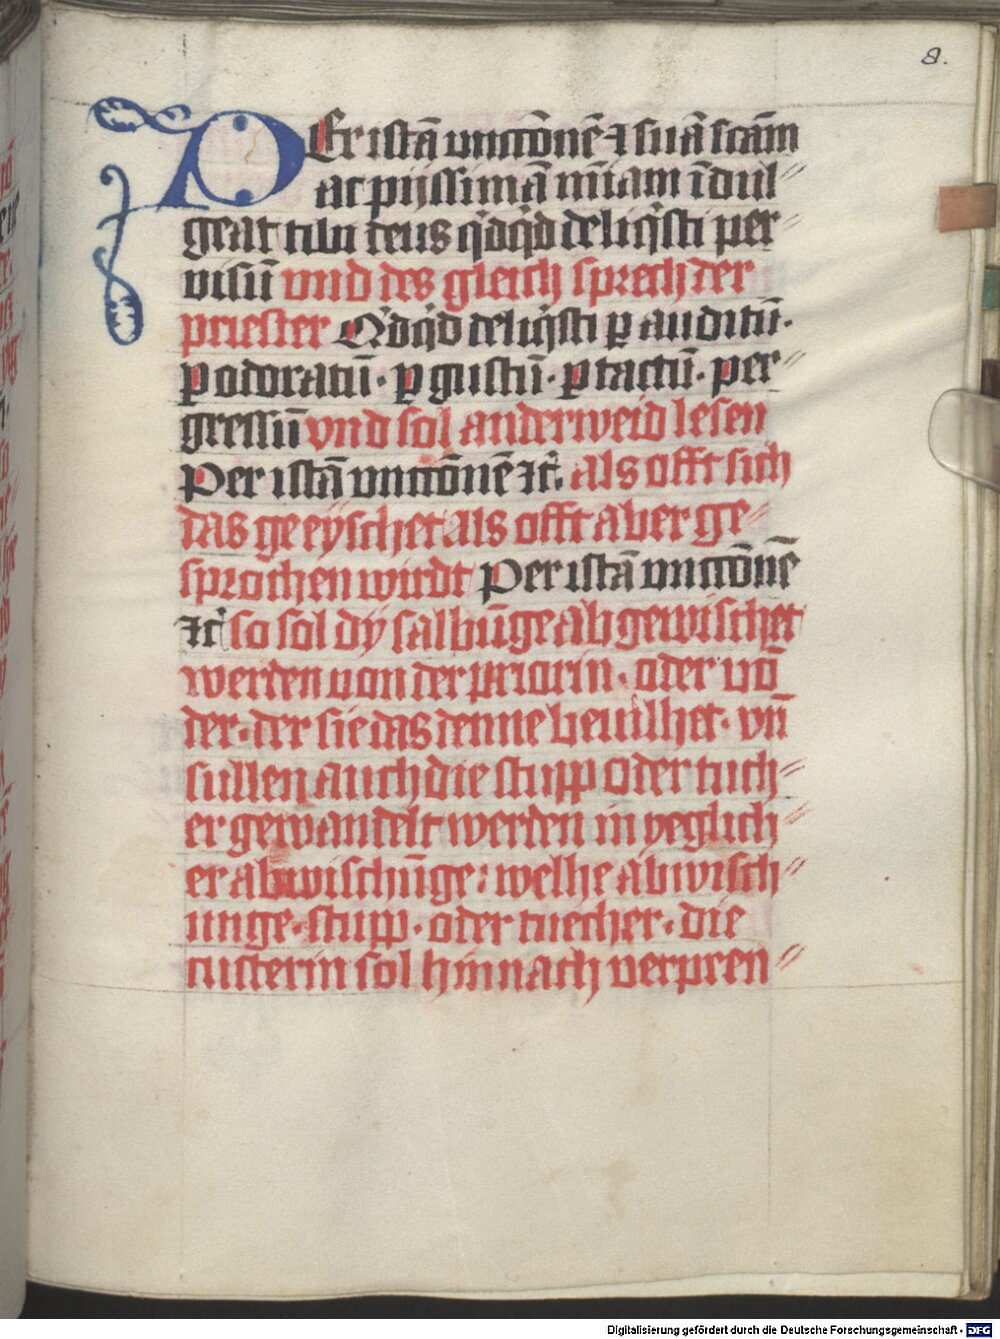 8.
PEr istā vnctōnē ⁊ suā scām
ac pijssimā mīam īdul⸗
geat tibi deus qͥdqͥd deliqͥsti per⸗
visū vnd des gleich sprech der
priester Qͥdqͥd deliqͥsti ꝑ auditū·
ꝑ odoratū· ꝑ gustū· ꝑ tactū· per⸗
gressū vnd sol anderweid lesen
Per istā vnctōnē ⁊c̄. als offt sich
das geeyschet als offt aber ge⸗
sprochen wirdt Per istā vnctōnē
⁊c̄ so sol dy salbūge abgewischet
werden von der priorin· oder vō
der· der sie das denne beuilhet· vn̄
sullen auch die stupp oder tuch⸗
er gewandelt werden in yeglich⸗
er abwischūge: welhe abwisch⸗
unge· stupp· oder tuecher· die
custerin sol hinnach verpren⸗
Digitalisierung gefördert durch die Deutsche Forschungsgemeinschaft - DFG